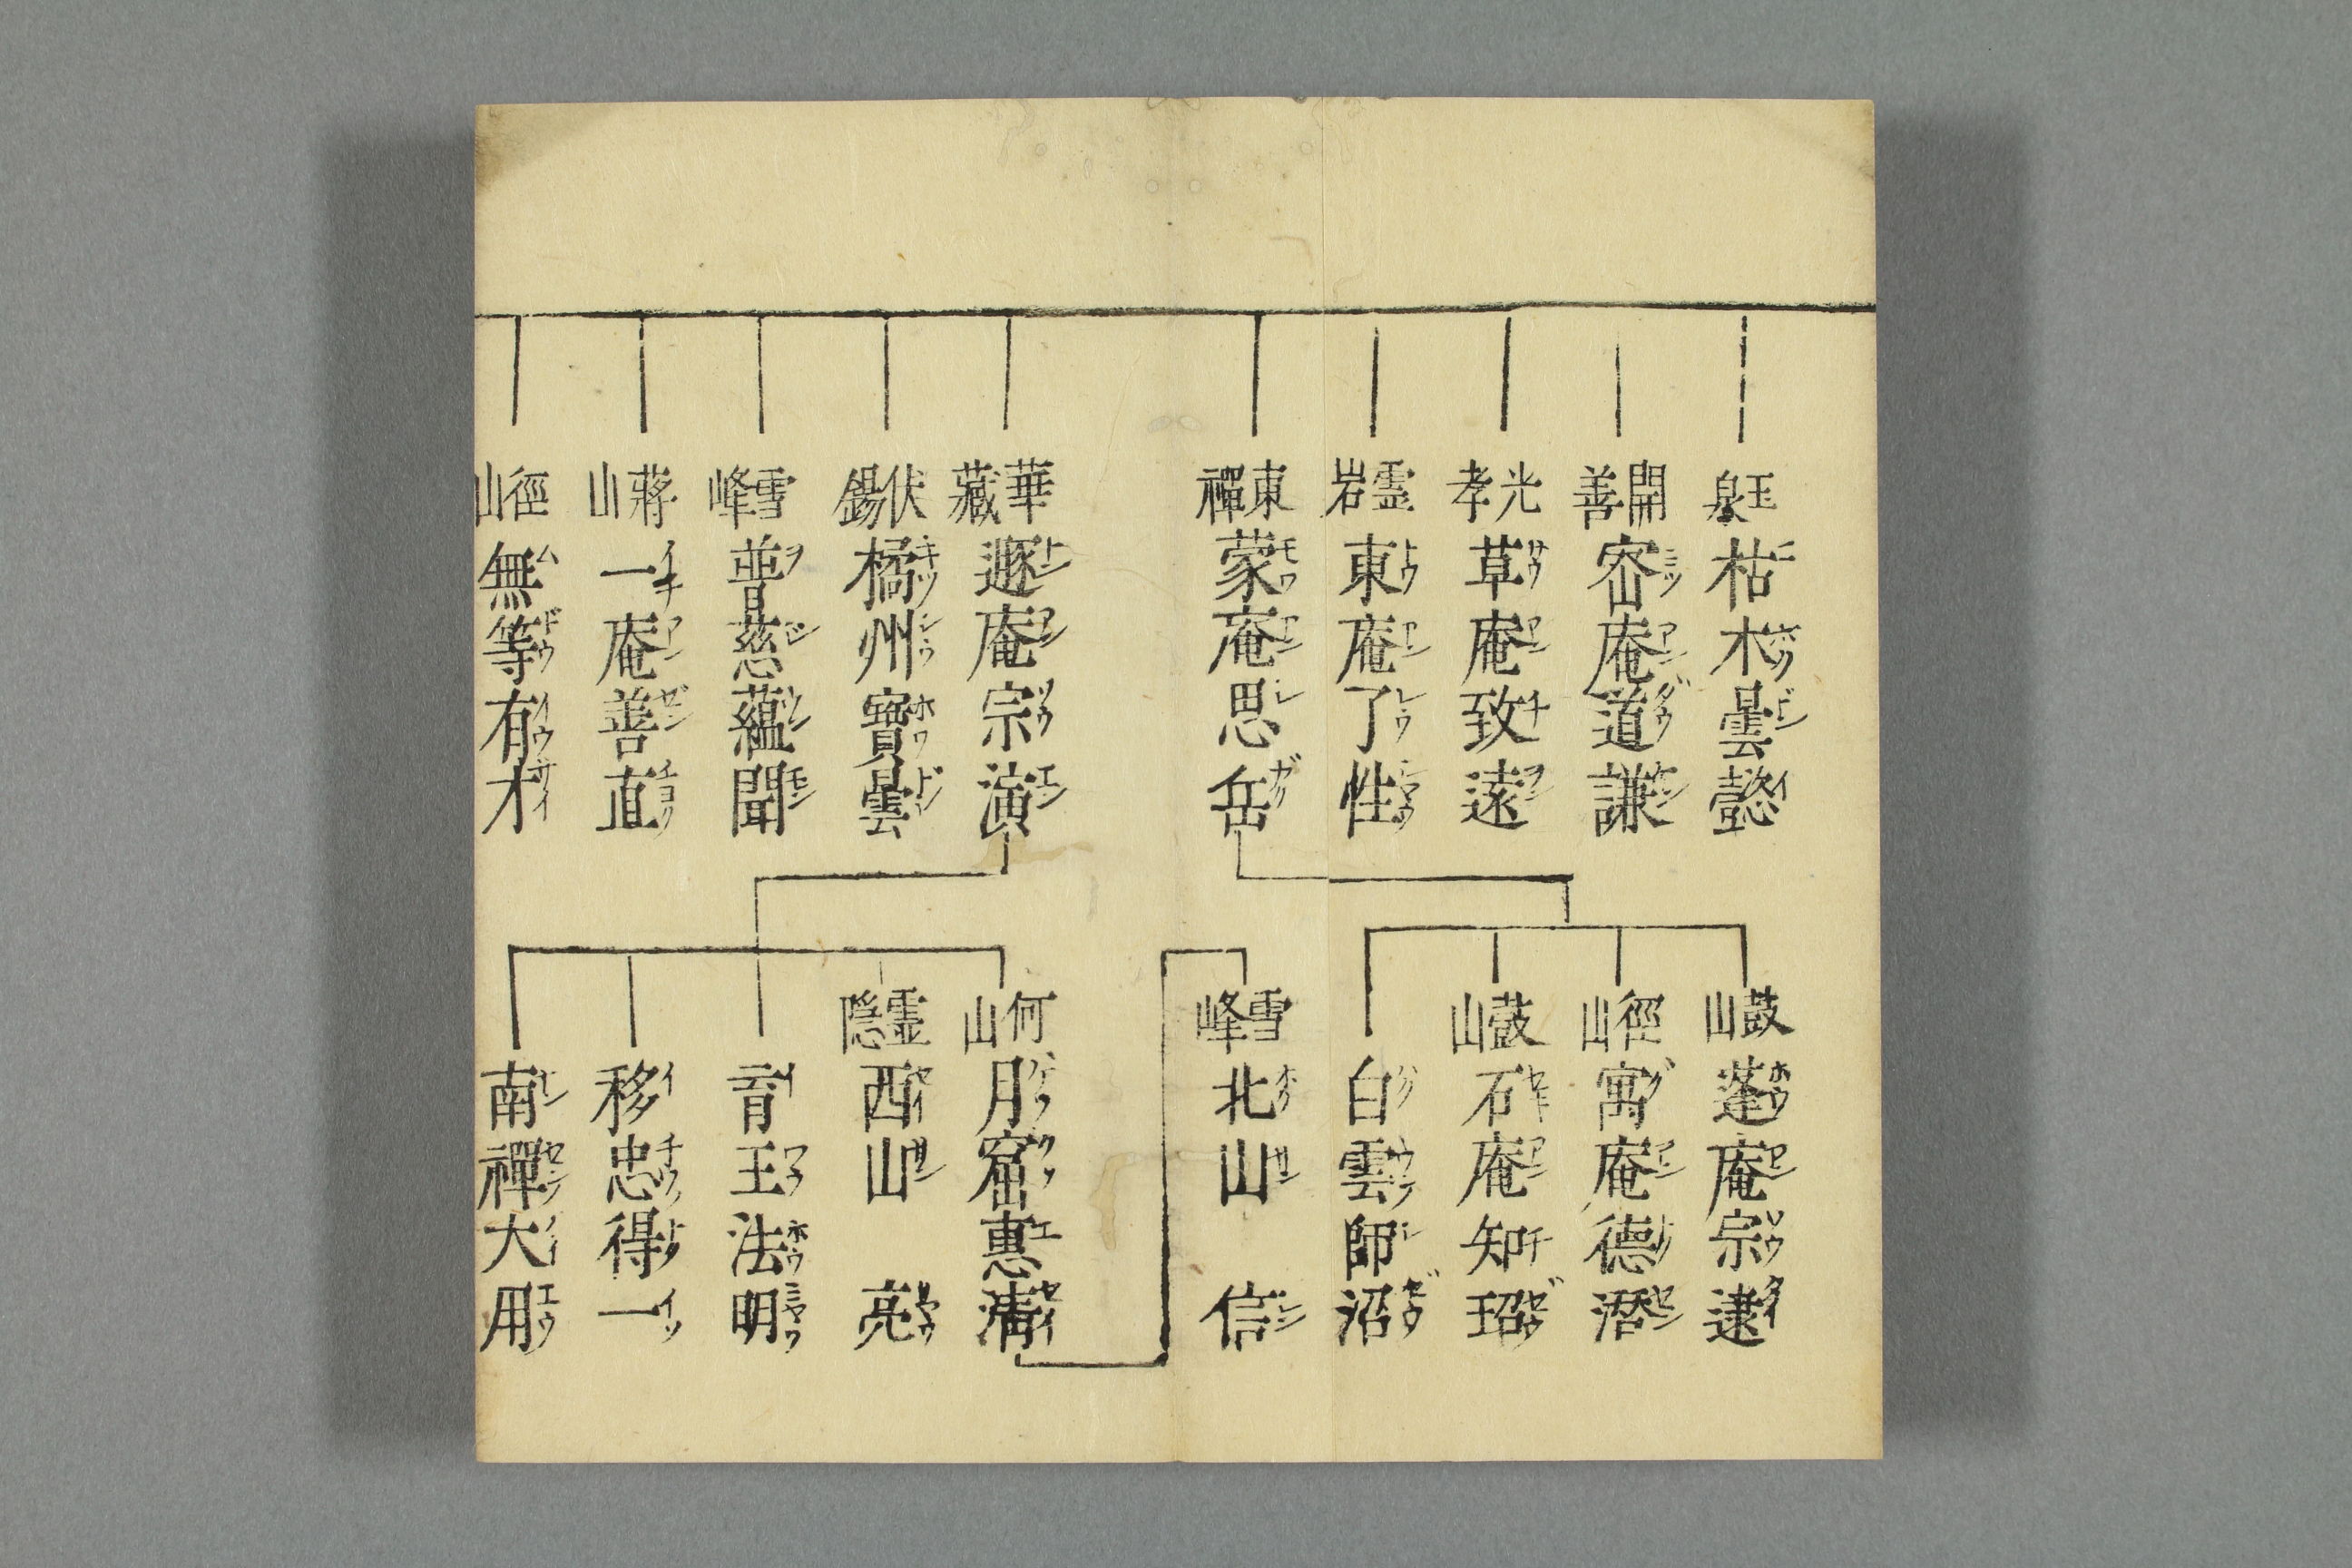 玉泉 枯木曇懿
開善 密庵道謙
光孝 草庵致遠
霊岩 東庵了性
東禪 蒙庵思岳
鼓山 蓬庵宗逮
徑山 寓庵德潛
鼓山 石庵知玿
白雲師沼
雪峰 北山信
華藏 遯庵宗演
伏錫 橘州寶曇
雪峰 普慈蘊聞
蔣山 一庵善直
徑山 無等有才
何山 月窟惠清
霊隠 西山亮
育王法明
移忠得一
南禪大用